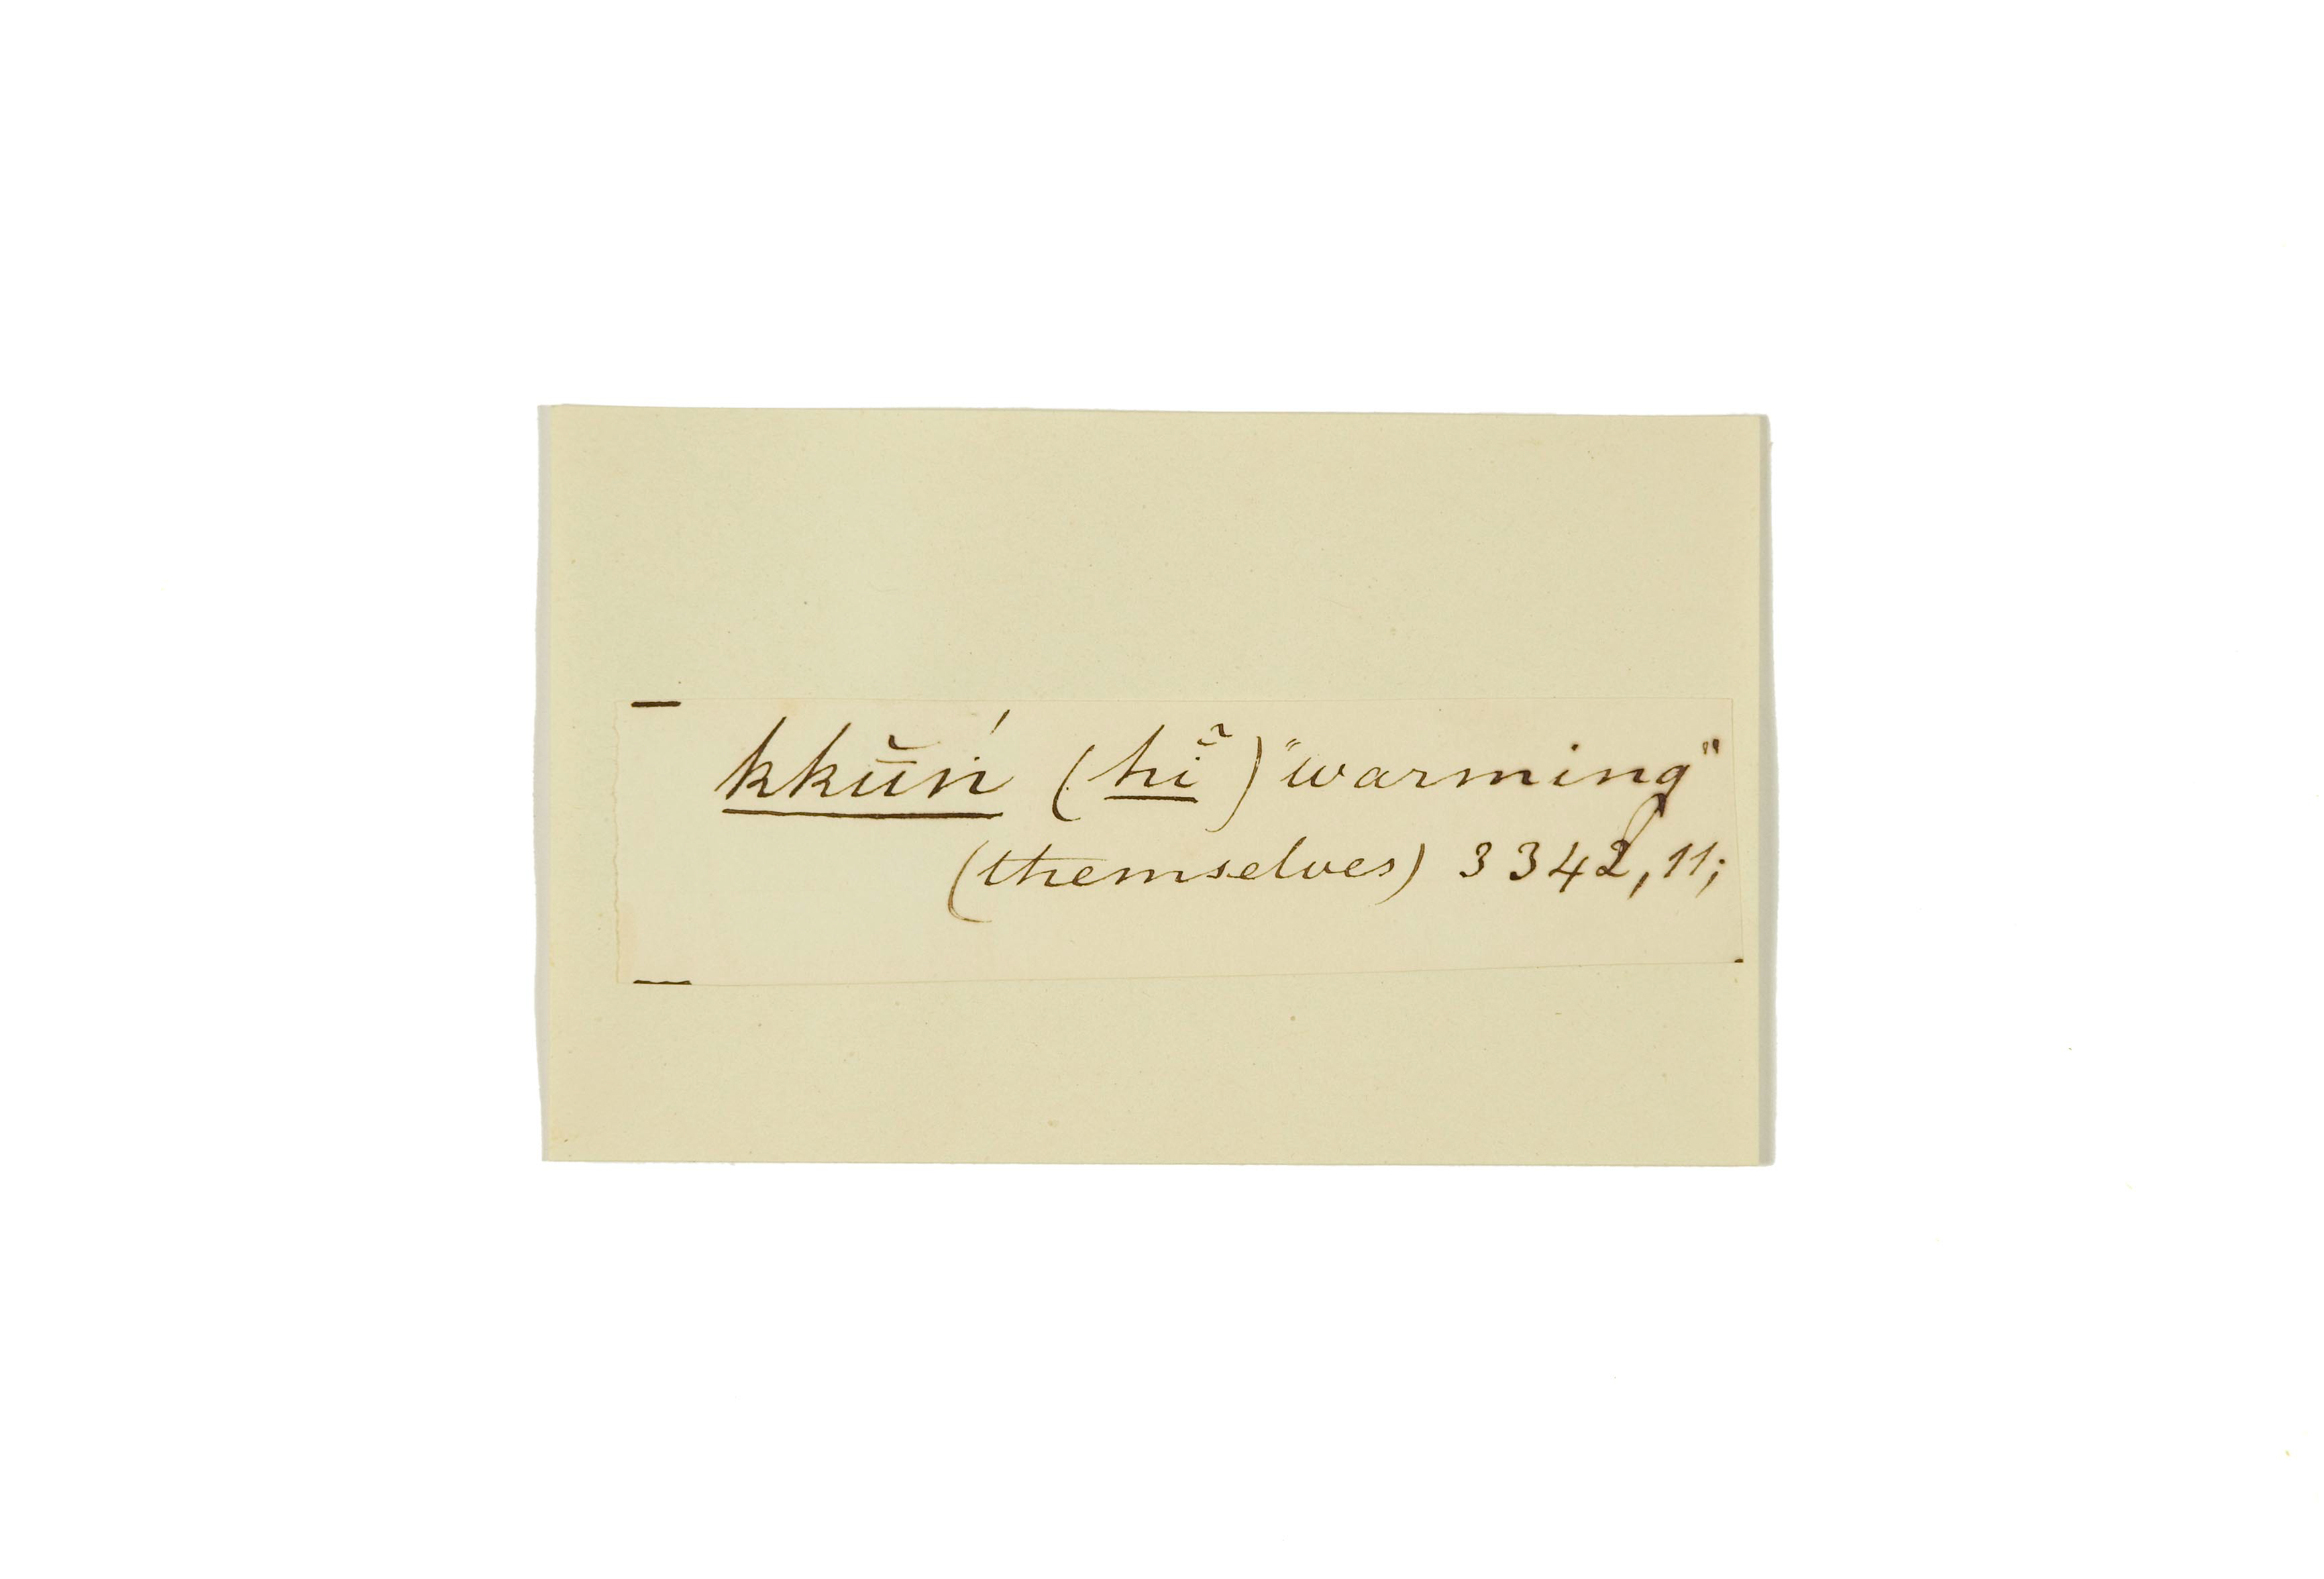 kkū̆ṅ́ (hĭ̃) "warming"
(themselves) 3342, 11;